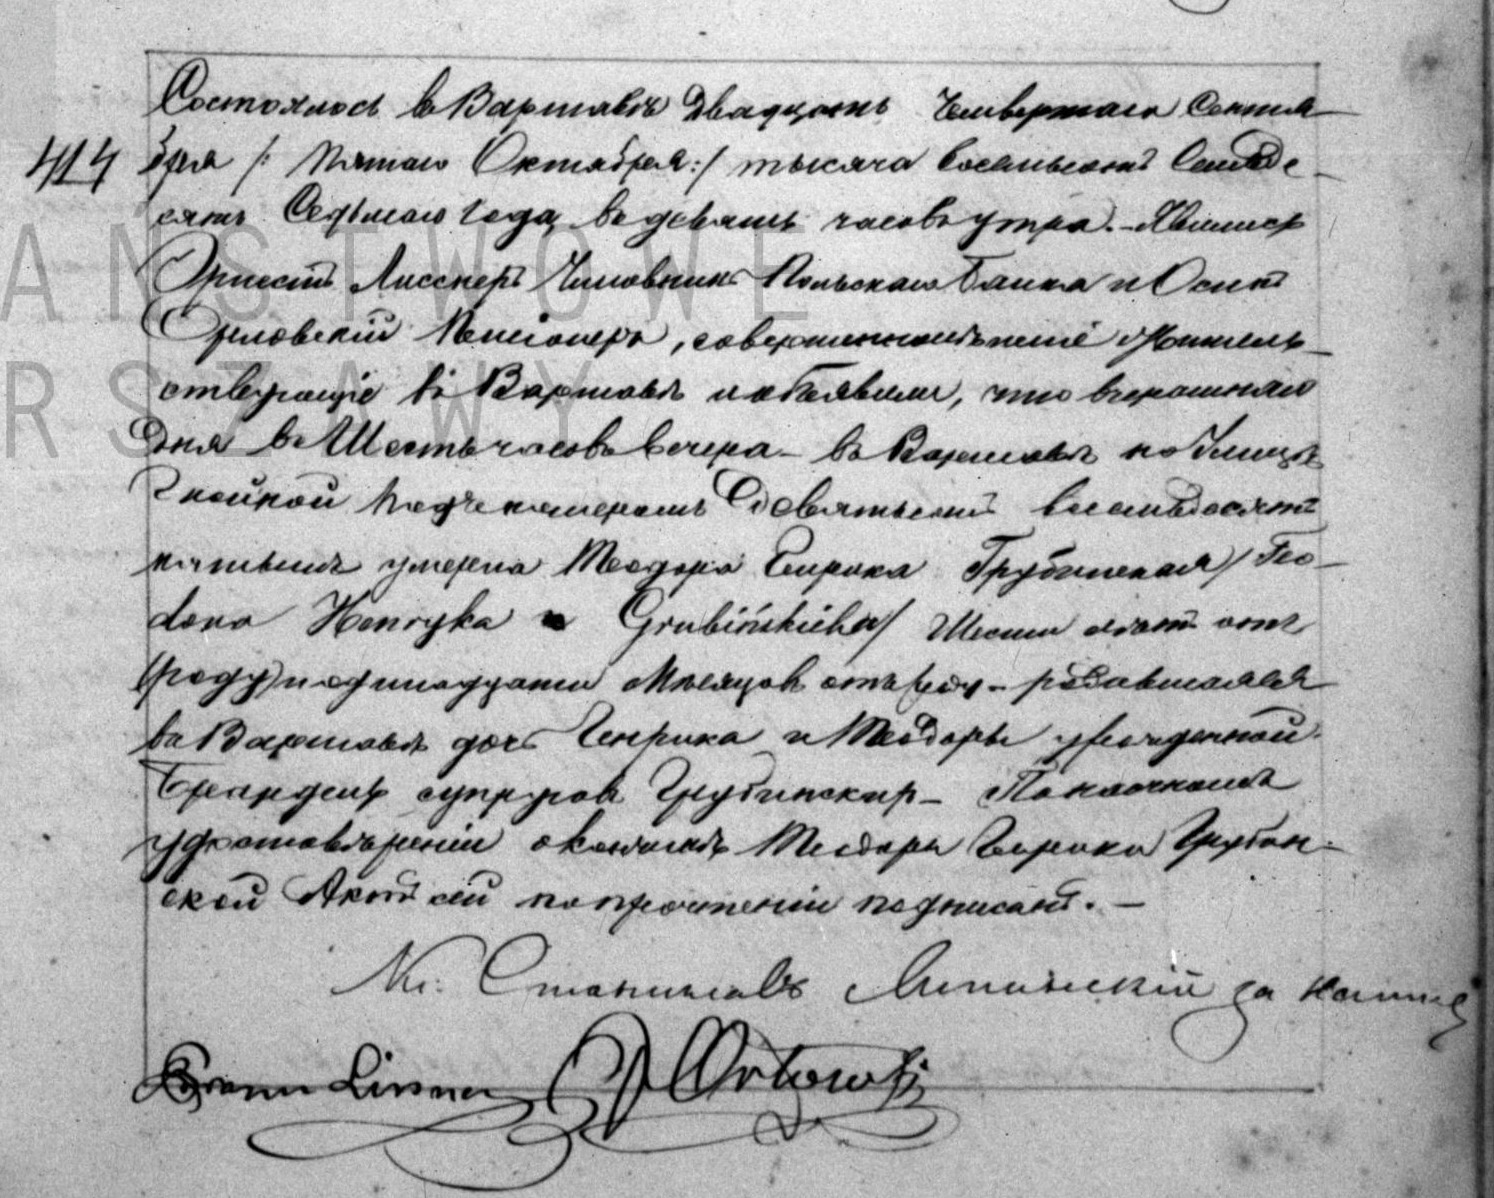 Состоялось въ Варшавѣ двадцать Четвертаго Сентя-
414 бря /: Пятаго Октября :/ тысяча восемьсотъ Семьде-
сятъ Седьмаго года, въ девять часовъ утра. - Явились
Эрнестъ Лисснеръ Чиновникъ Польскаго Банка и Осипъ
Орловскій Пенсіонеръ, совершеннолѣтніе Житель-
ствующіе въ Варшавѣ и объявили, что вчерашняго
дня въ Шесть часовъ вечера - въ Варшавѣ по Улицѣ
подъ номеромъ Девятьсотъ восемьдесятъ
пятымъ умерла Теодора Генрика Грубинская /Teo-
dora Henryka Grubińskich/ Шесть лѣтъ отъ
роду и одинадцати Мѣсяцовъ отъ роду - родившаяся
въ Варшавѣ дочь Генрика и Теодоры урожденной
супруговъ Грубинскихъ - По настоящемъ
удостовѣреніи о кончинѣ Теодоры Генрики Грубин-
ской Актъ сей по прочтеніи подписанъ. -
Кс. Станиславъ за
Lissner Orłowski
ANSTWOWE
RSZAWY